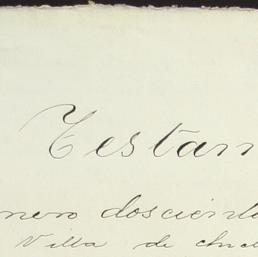 Testam
nero dosciento
Villa de chucl